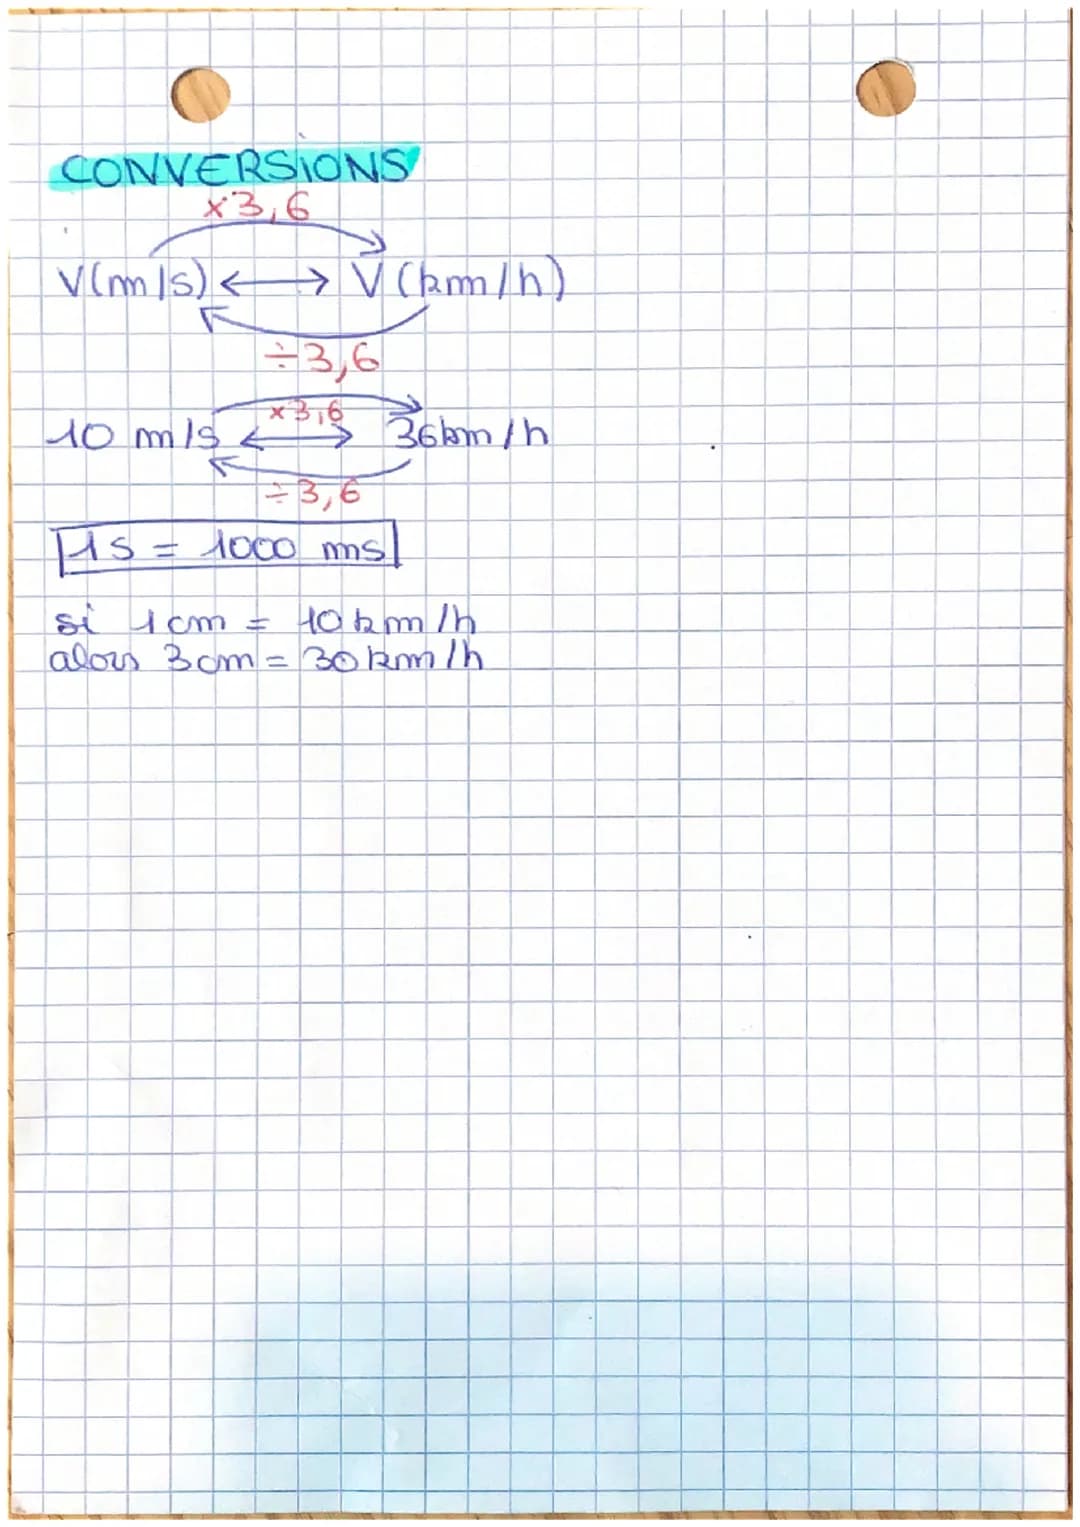 CONVERSIONS
×3,6
V(m/s) ↔ V(km/h)
÷3,6
×3,6
10 m/s ↔ 36km/h
÷3,6
1s = 1000 ms
si 1cm = 10km/h
alors 3cm = 30km/h